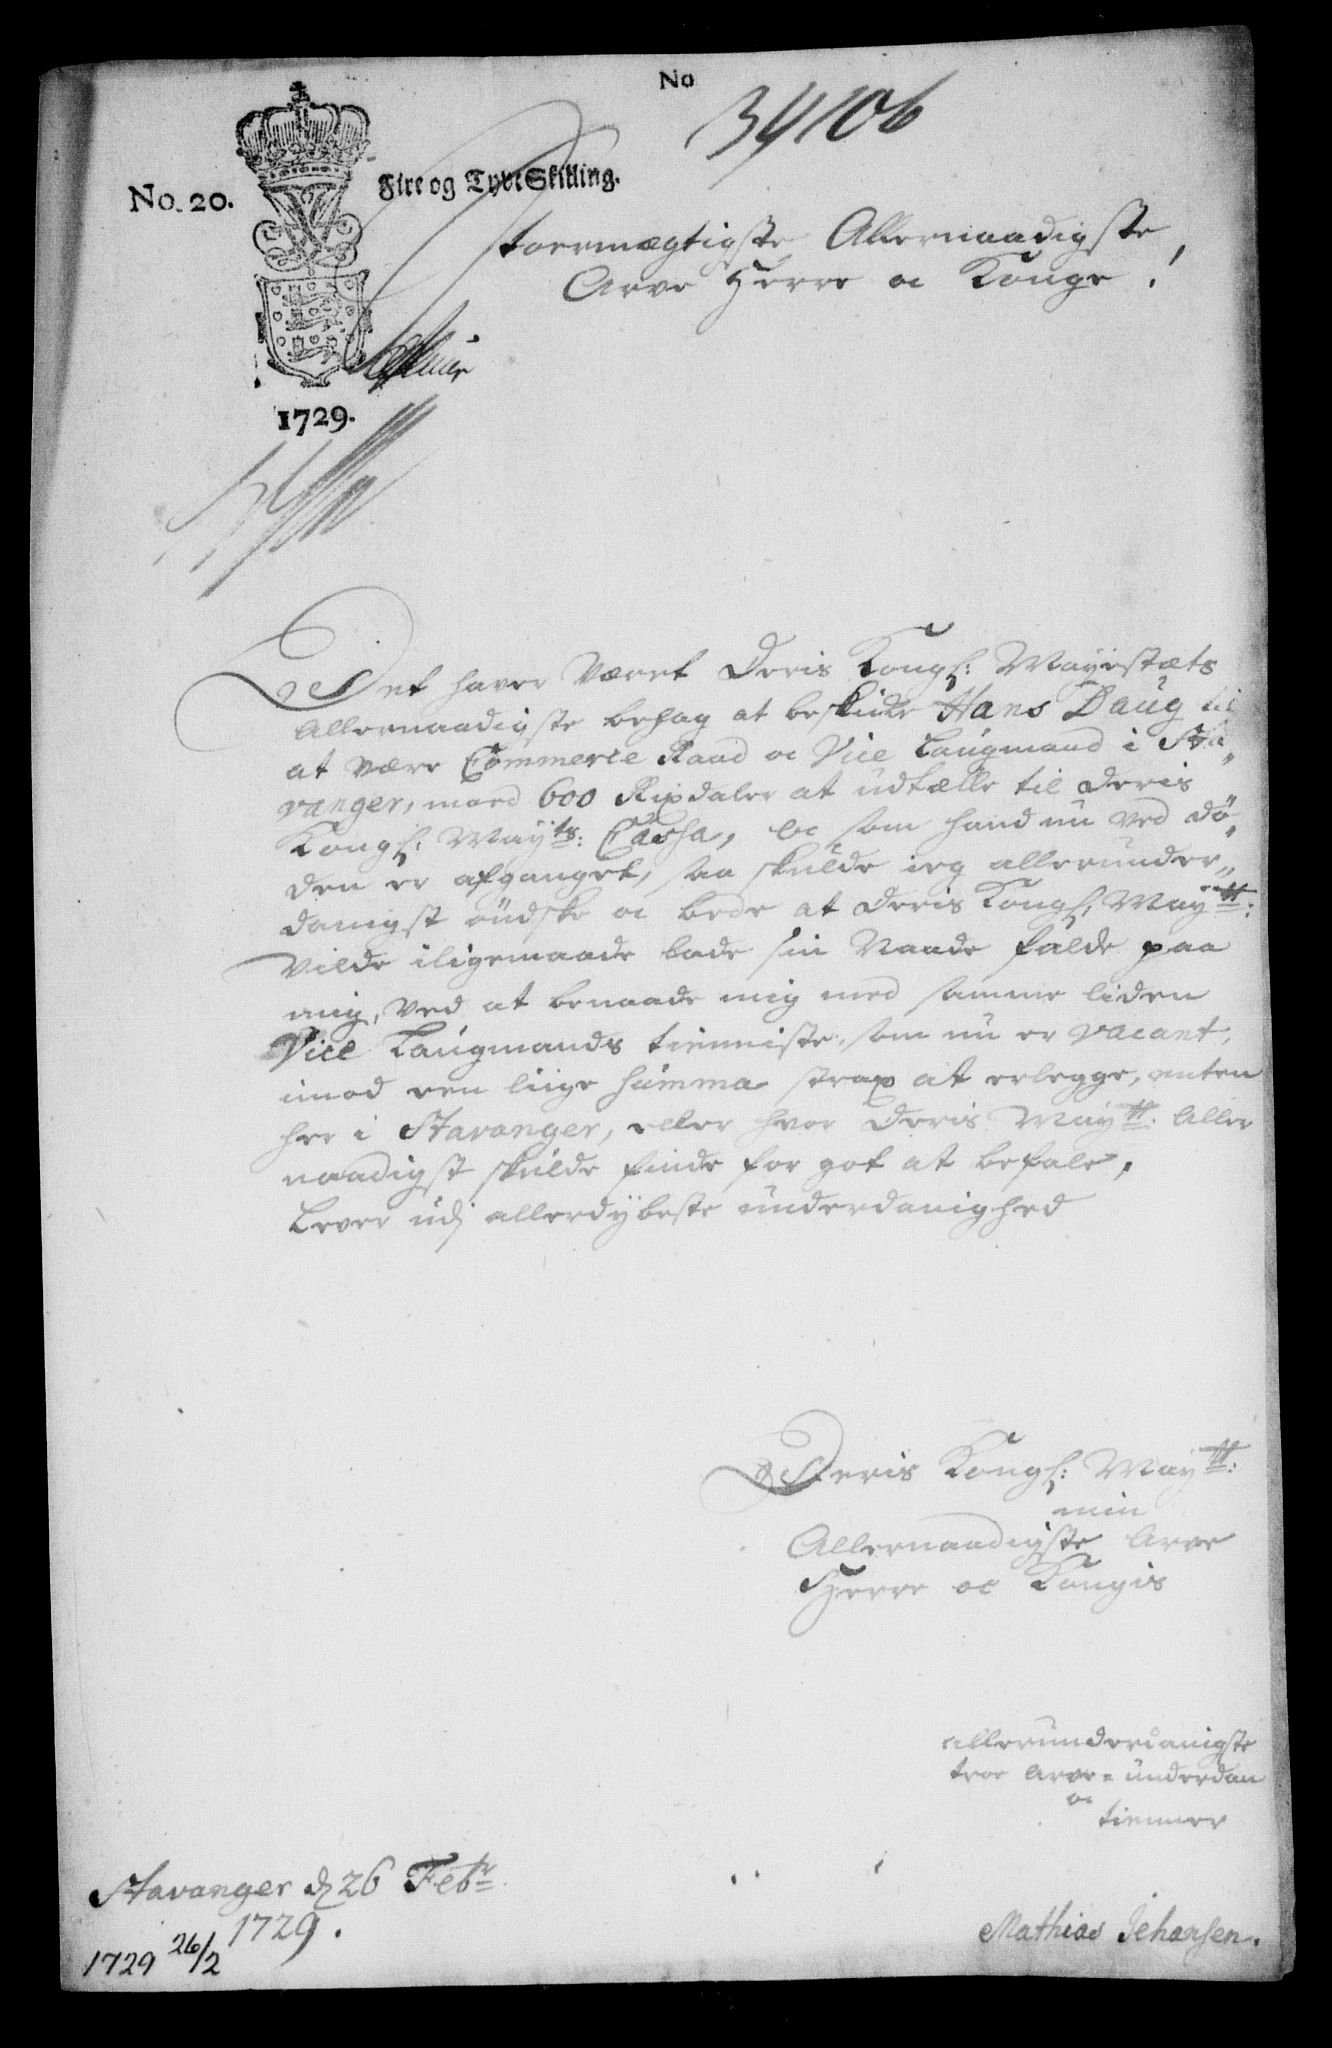 No
34106
No. 20.
Fire og Tyve Skilling.
Stoermægtigste Allernaadigste
Arve Herre oc Konge!
1729.
Det haver Været Deris Kongl: Mayestæts
Allernaadigste behag at beskicke Hans Daug til
at være Commerce Raad oc Vice Laugmand i Sta„
vanger, moed 600 Rixdaler at udtælle til Deris
Kongl: Mayts: Cassa, oc som hand nu ved dö„
den er afganget, saa skulde ieg allerunder„
danigst öndske oc bede at Deris Kongl: Maytt:
Vilde iligemaade lade sin Naade falde paa
mig, Ved at benaade mig med samme liden
Vice Laugmands tienniste, som nu er vacant,
imod een liige summa strax at erlegge, enten
her i Stavanger, eller hvor Deris Maytt: Aller
naadigst skulde finde for got at befale,
Lever udj allerdybeste underdanighed
Deris Kongl: Maytt:
min
Allernaadigste Arve
Herre oc Kongis
allerunderdanigste
troe Arve=underdan
oc
tienner
Stavanger d 26 Febr
1729.
Mathias Johansen.
1729 26/2